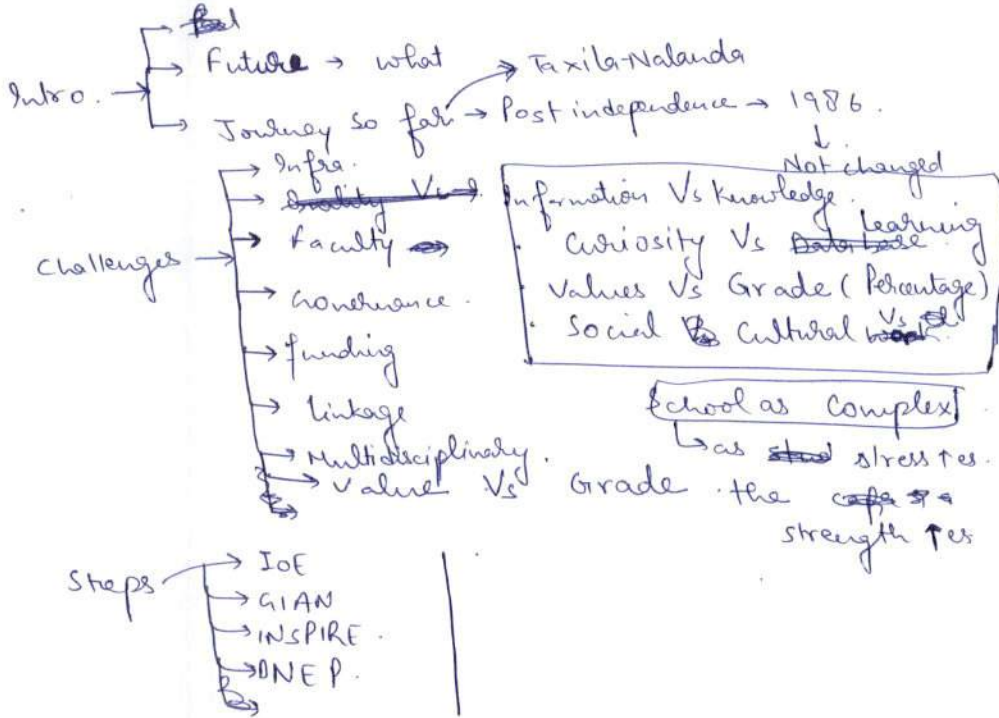 Intro.
Future → what
Taxila-Nalanda
Journey so far → Post independence → 1986.
Not changed
Challenges
Infra.
Faculty
Governance.
funding
Linkage
Multidisciplinary.
Value Vs Grade
Information Vs Knowledge.
Curiosity Vs Learning
Values Vs Grade (Percentage)
Social Cultural Vs
School as Complex
as stress ↑es.
the
strength ↑es
Steps
IoE
GIAN
INSPIRE.
DNEP.